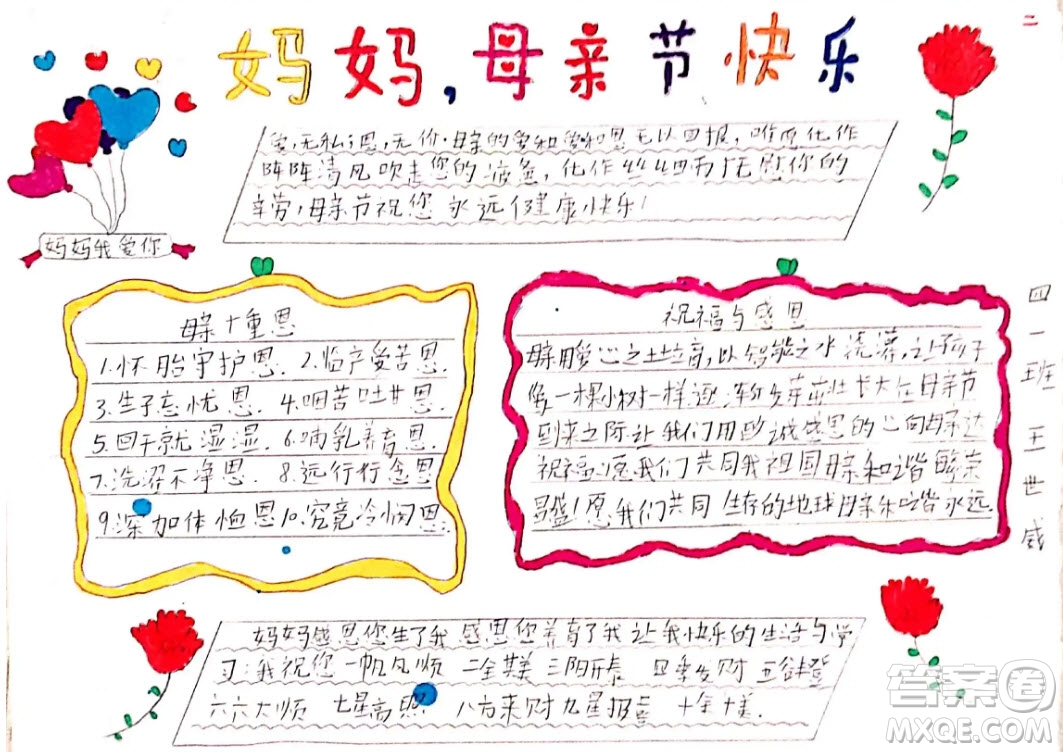 二
妈妈,母亲节快乐
爱,无私;恩,无价.母亲的爱和恩无以回报,唯愿化作
阵阵清风吹走您的疲惫,化作丝丝细雨抚慰你的
辛劳,母亲节祝您 永远健康快乐!
妈妈我爱你
母亲十重恩
1.怀胎守护恩. 2.临产受苦恩.
3.生子忘忧恩. 4.咽苦吐甘恩.
5.回干就湿湿. 6.哺乳养育恩.
7.洗濯不净恩. 8.远行忆念恩.
9.深加体恤恩10.究竟冷悯恩.
祝福与感恩
母亲用爱心之土培育,以智能之水浇灌,让孩子
像一棵小树一样逐渐发芽茁壮长大在母亲节
到来之际让我们用砂诚感恩的心向母亲送
祝福,愿我们共同我祖国母亲和谐繁荣
昌盛!愿我们共同生存的地球母亲和谐永远
四一班王世威
妈妈感恩您生了我 感恩您养育了我 让我快乐的生活与学
习:我祝您一帆风顺 二全其美 三阳开泰 四季发财 五谷丰登
六六大顺 七星高照 八方来财九星报喜 十全十美.
答案圈
MXQE.COM